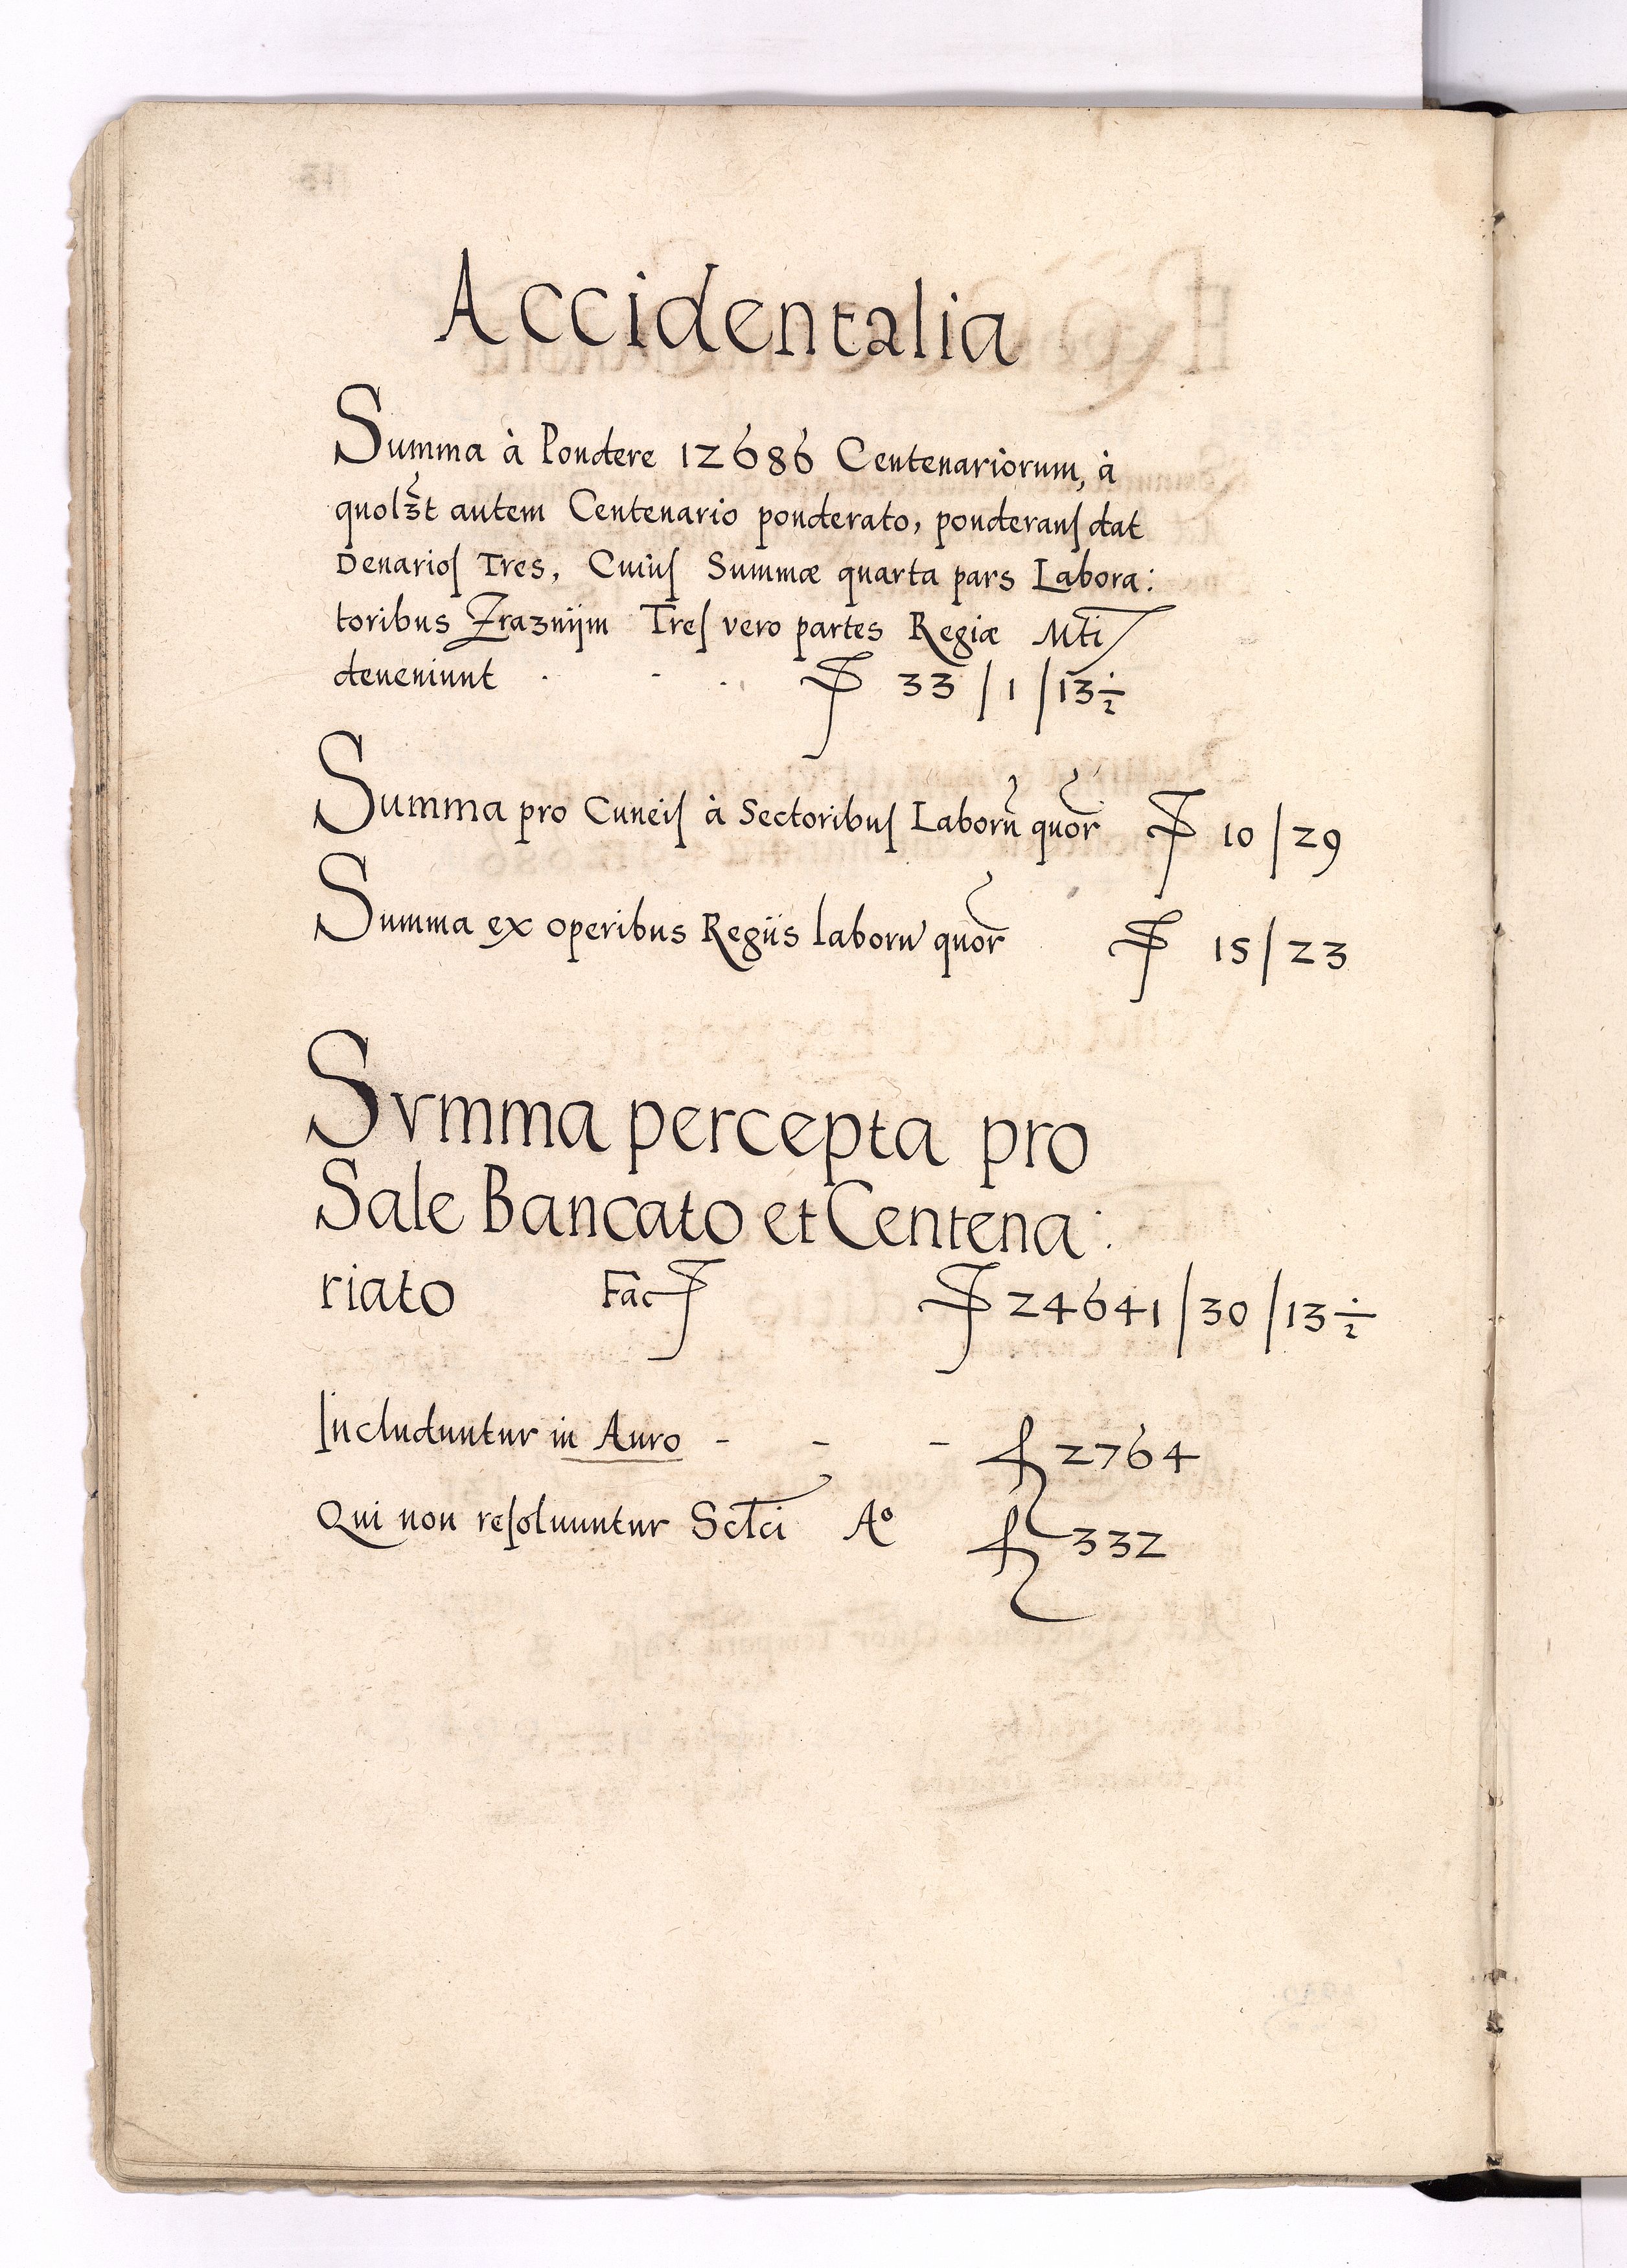 Accidentalia
Summa à Pondere 12686 Centenariorum, à
quolꝫt autem Centenario ponderato, ponderans dat
Denarios Tres, Cuius Summæ quarta pars Labora:
toribus Zrazniim Tres vero partes Regiæ Mti
deveniunt . - . 33 / 1 / 13 1/2
Summa pro Cuneis à Sectoribus Laborũ quor 10 / 29
Summa ex operibus Regiis laborũ quor 15 / 23
Svmma percepta pro
Sale Bancato et Centena:
riato Fac 24641 / 30 / 13 1/2
Includuntur in Auro - - - fl 2764
Qui non resoluuntur Scti Aº fl 332